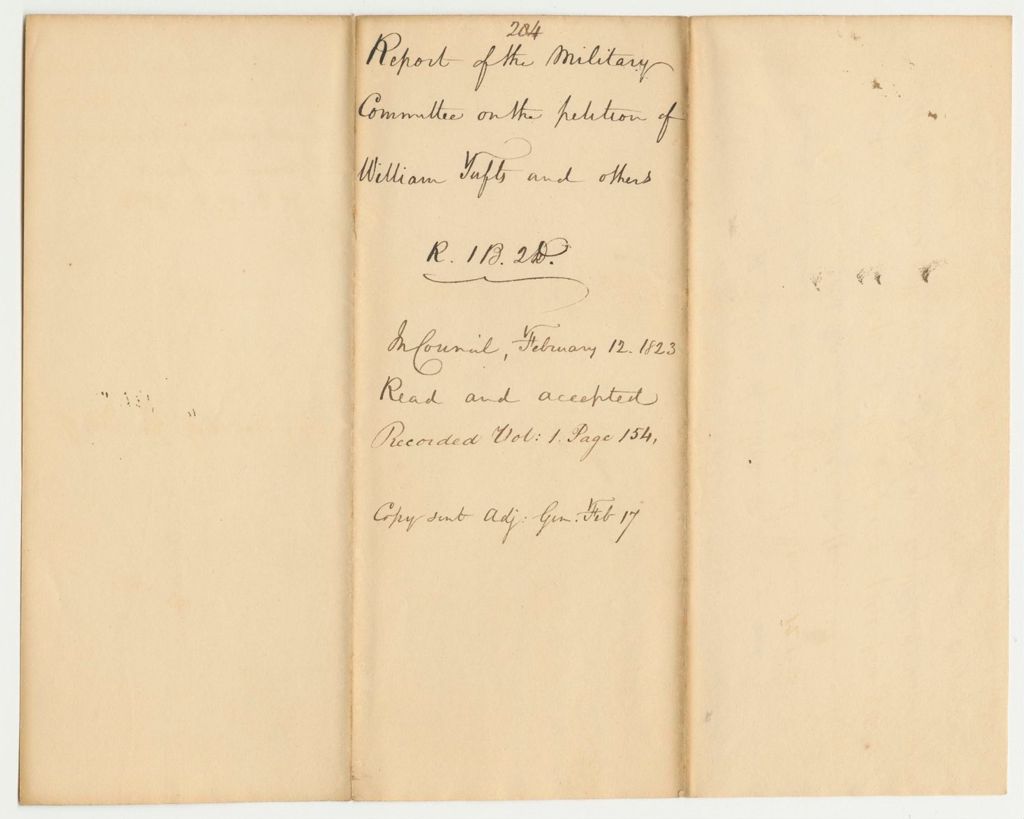 204
Report of the Military
Committee on the petition of
William Tufts and others
R. 1 B. 2 D.
In Council, February 12. 1823
Read and accepted
Recorded Vol: 1. Page 154,
Copy sent Adj: Gen: Feb 17